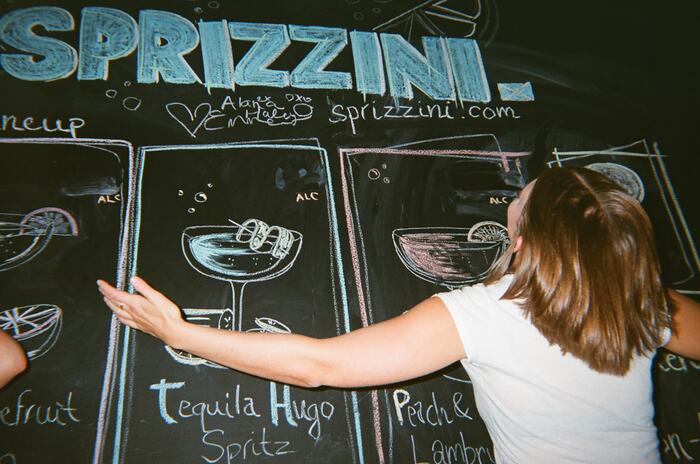 SPRIZZINI.
Alana xo
Emilee
sprizzini.com
neup
ALC
ALC
ALC
efruit
Tequila Hugo
Spritz
Peach &
Lambru